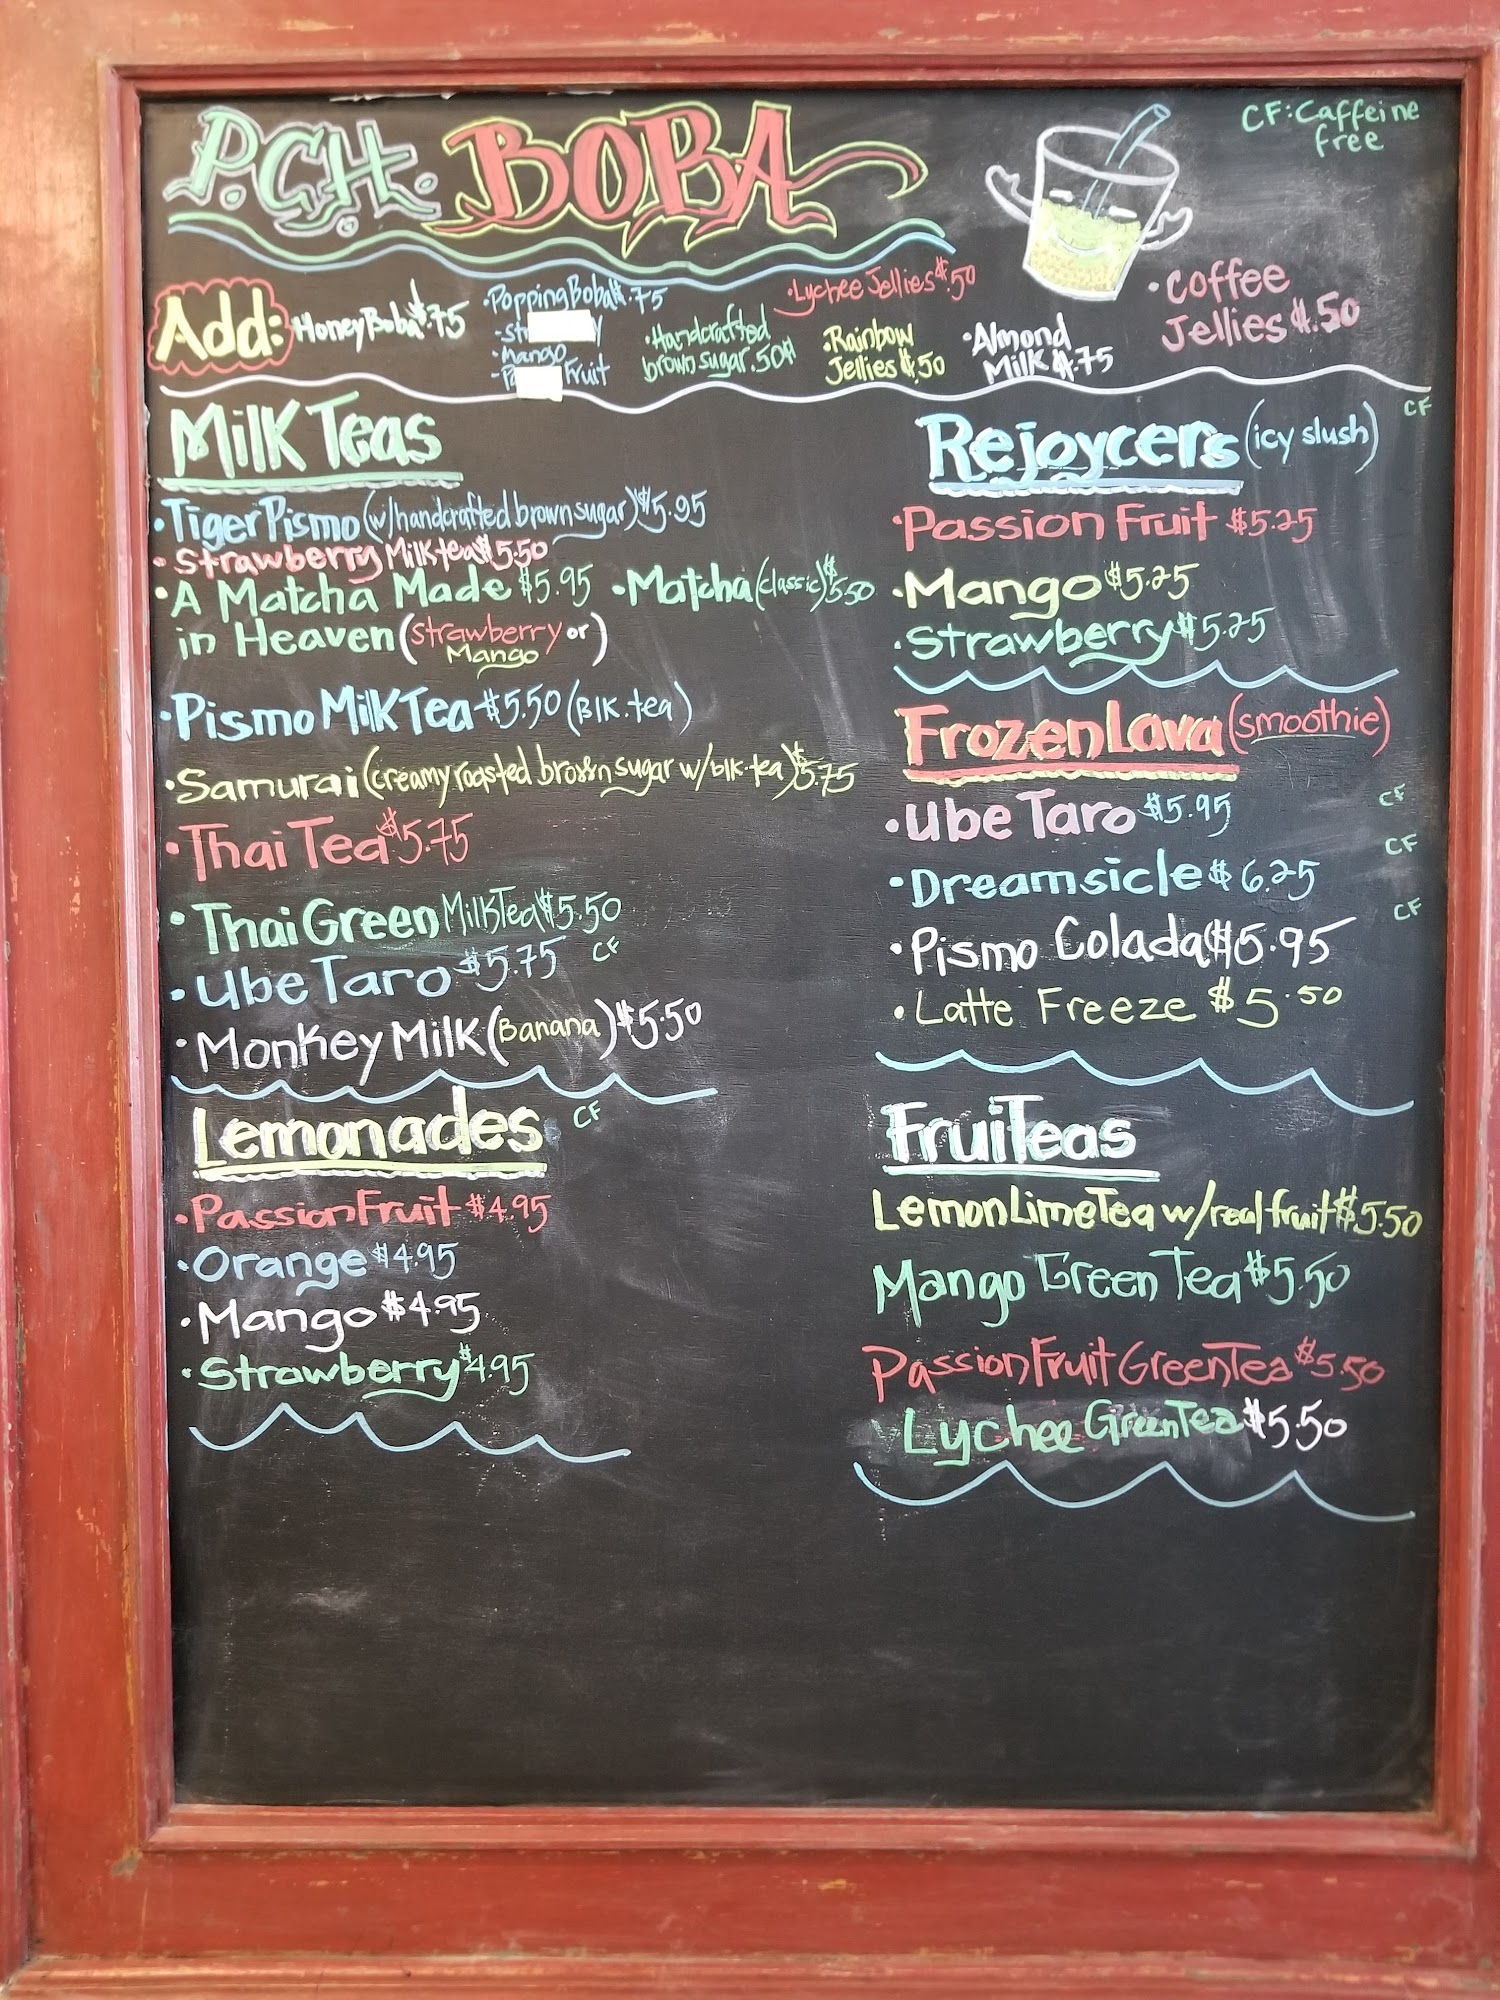 P.C.H. BOBA
CF: Caffeine
free
Add:
Honey Boba $.75
• Popping Boba $.75
• Mango
Fruit
• Handcrafted
brown sugar .50¢
• Lychee Jellies $.50
• Rainbow
Jellies $.50
• Almond
Milk $.75
• Coffee
Jellies $.50
Milk Teas
• Tiger Pismo (w/handcrafted brown sugar) $5.95
• Strawberry Milk tea $5.50
• A Matcha Made $5.95 • Matcha (classic) $5.50
in Heaven (strawberry or
Mango)
• Pismo Milk Tea $5.50 (Blk. tea)
• Samurai (creamy roasted brown sugar w/blk. tea) $5.75
• Thai Tea $5.75
• Thai Green Milk Tea $5.50
• Ube Taro $5.75 CF
• Monkey Milk (Banana) $5.50
Lemonades CF
• Passion Fruit $4.95
• Orange $4.95
• Mango $4.95
• Strawberry $4.95
Rejoycers (icy slush) CF
• Passion Fruit $5.25
• Mango $5.25
• Strawberry $5.25
Frozen Lava (smoothie)
• Ube Taro $5.95 CF
• Dreamsicle $6.25 CF
• Pismo Colada $5.95 CF
• Latte Freeze $5.50
FruiTeas
Lemon Lime Tea w/real fruit $5.50
Mango Green Tea $5.50
Passion Fruit Green Tea $5.50
Lychee Green Tea $5.50